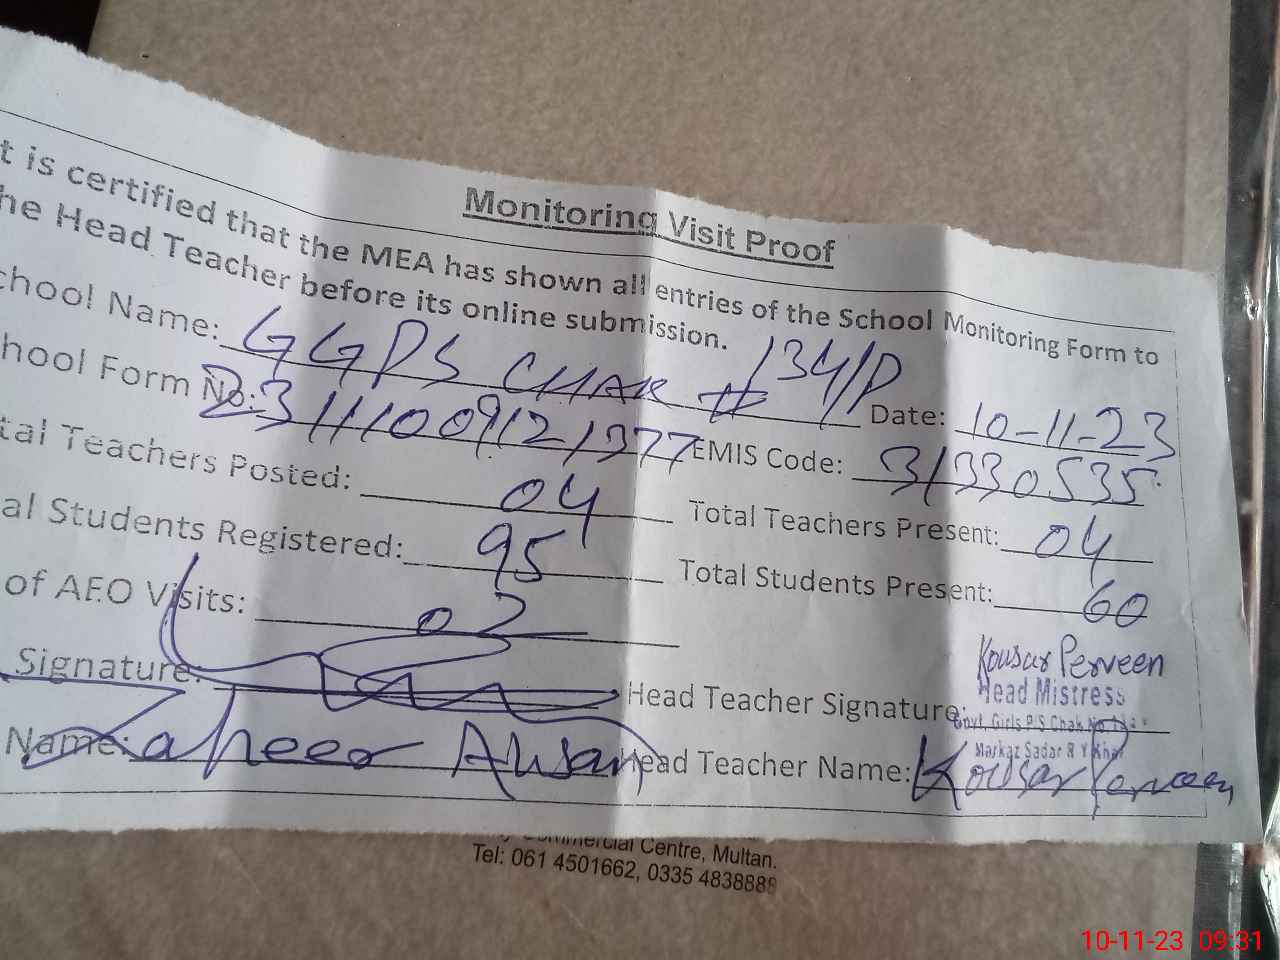 Monitoring Visit Proof
t is certified that the MEA has shown all entries of the School Monitoring Form to
he Head Teacher before its online submission.
chool Name: GGPS CHAK # 134/P Date: 10-11-23
hool Form No: 231111009121377 EMIS Code: 31330535
tal Teachers Posted: 04 Total Teachers Present: 04
al Students Registered: 95 Total Students Present: 60
of AEO Visits: 02
Signature: Head Teacher Signature: Kousar Perveen
Head Mistress
Govt. Girls P/S Chak No.
Markaz Sadar R Y Khan
Name: Zaheer Awan Head Teacher Name: Kousar Perveen
Commercial Centre, Multan.
Tel: 061 4501662, 0335 4838888
10-11-23 09:31